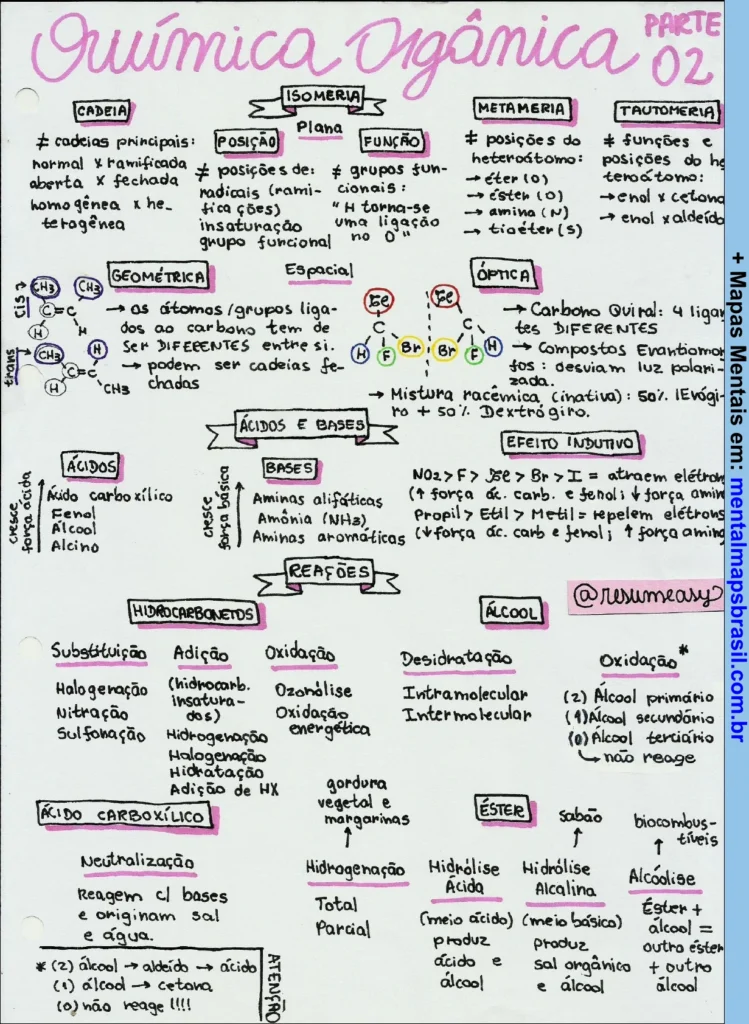 Química Orgânica PARTE 02
ISOMERIA
Plana
CADEIA
≠ cadeias principais:
normal x ramificada
aberta x fechada
homogênea x he_
terogênea
POSIÇÃO
≠ posições de:
radicais (rami-
ficações)
insaturação
grupo funcional
FUNÇÃO
≠ grupos fun-
cionais:
"H torna-se
uma ligação
no O"
METAMERIA
≠ posições do
heteroátomo:
→ éter (O)
→ éster (O)
→ amina (N)
→ tioéter (S)
TAUTOMERIA
≠ funções e
posições do he
teroátomo:
→ enol x cetona
→ enol x aldeído
Espacial
GEOMÉTRICA
cis →
CH3 CH3
C = C
H H
trans
CH3 H
C = C
H CH3
→ os átomos/grupos liga-
dos ao carbono tem de
ser DIFERENTES entre si.
→ podem ser cadeias fe-
chadas
ÓPTICA
Cl Cl
C C
H F Br Br F H
→ Carbono Quiral: 4 ligan
tes DIFERENTES
→ Compostos Enantiomor
fos: desviam luz polari-
zada.
→ Mistura racêmica (inativa): 50% lEvógi-
ro + 50% Dextrógiro.
ÁCIDOS E BASES
ÁCIDOS
cresce
força ácida
Ácido carboxílico
Fenol
Álcool
Alcino
BASES
cresce
força básica
Aminas alifáticas
Amônia (NH3)
Aminas aromáticas
EFEITO INDUTIVO
NO2 > F > Cl > Br > I = atraem elétron
(↑ força ác. carb. e fenol; ↓ força amin
Propil > Etil > Metil = repelem elétrons
(↓ força ác. carb e fenol; ↑ força amina
REAÇÕES
@resumeasy
HIDROCARBONETOS
Substituição
Halogenação
Nitração
Sulfonação
Adição
(hidrocarb.
insatura-
dos)
Hidrogenação
Halogenação
Hidratação
Adição de HX
Oxidação
Ozonólise
Oxidação
energética
ÁLCOOL
Desidratação
Intramolecular
Intermolecular
Oxidação*
(2) Álcool primário
(1) Álcool secundário
(0) Álcool terciário
↳ não reage
ÁCIDO CARBOXÍLICO
Neutralização
Reagem c/ bases
e originam sal
e água.
ÉSTER
gordura
vegetal e
margarinas
↑
Hidrogenação
Total
Parcial
Hidrólise
Ácida
(meio ácido)
produz
ácido e
álcool
sabão
↑
Hidrólise
Alcalina
(meio básico)
produz
sal orgânico
e álcool
biocombus-
tíveis
↑
Alcoólise
Éster +
álcool =
outro éster
+ outro
álcool
* (2) álcool → aldeído → ácido
(1) álcool → cetona
(0) não reage !!!!
ATENÇÃO
+ Mapas Mentais em: mentalmapsbrasil.com.br